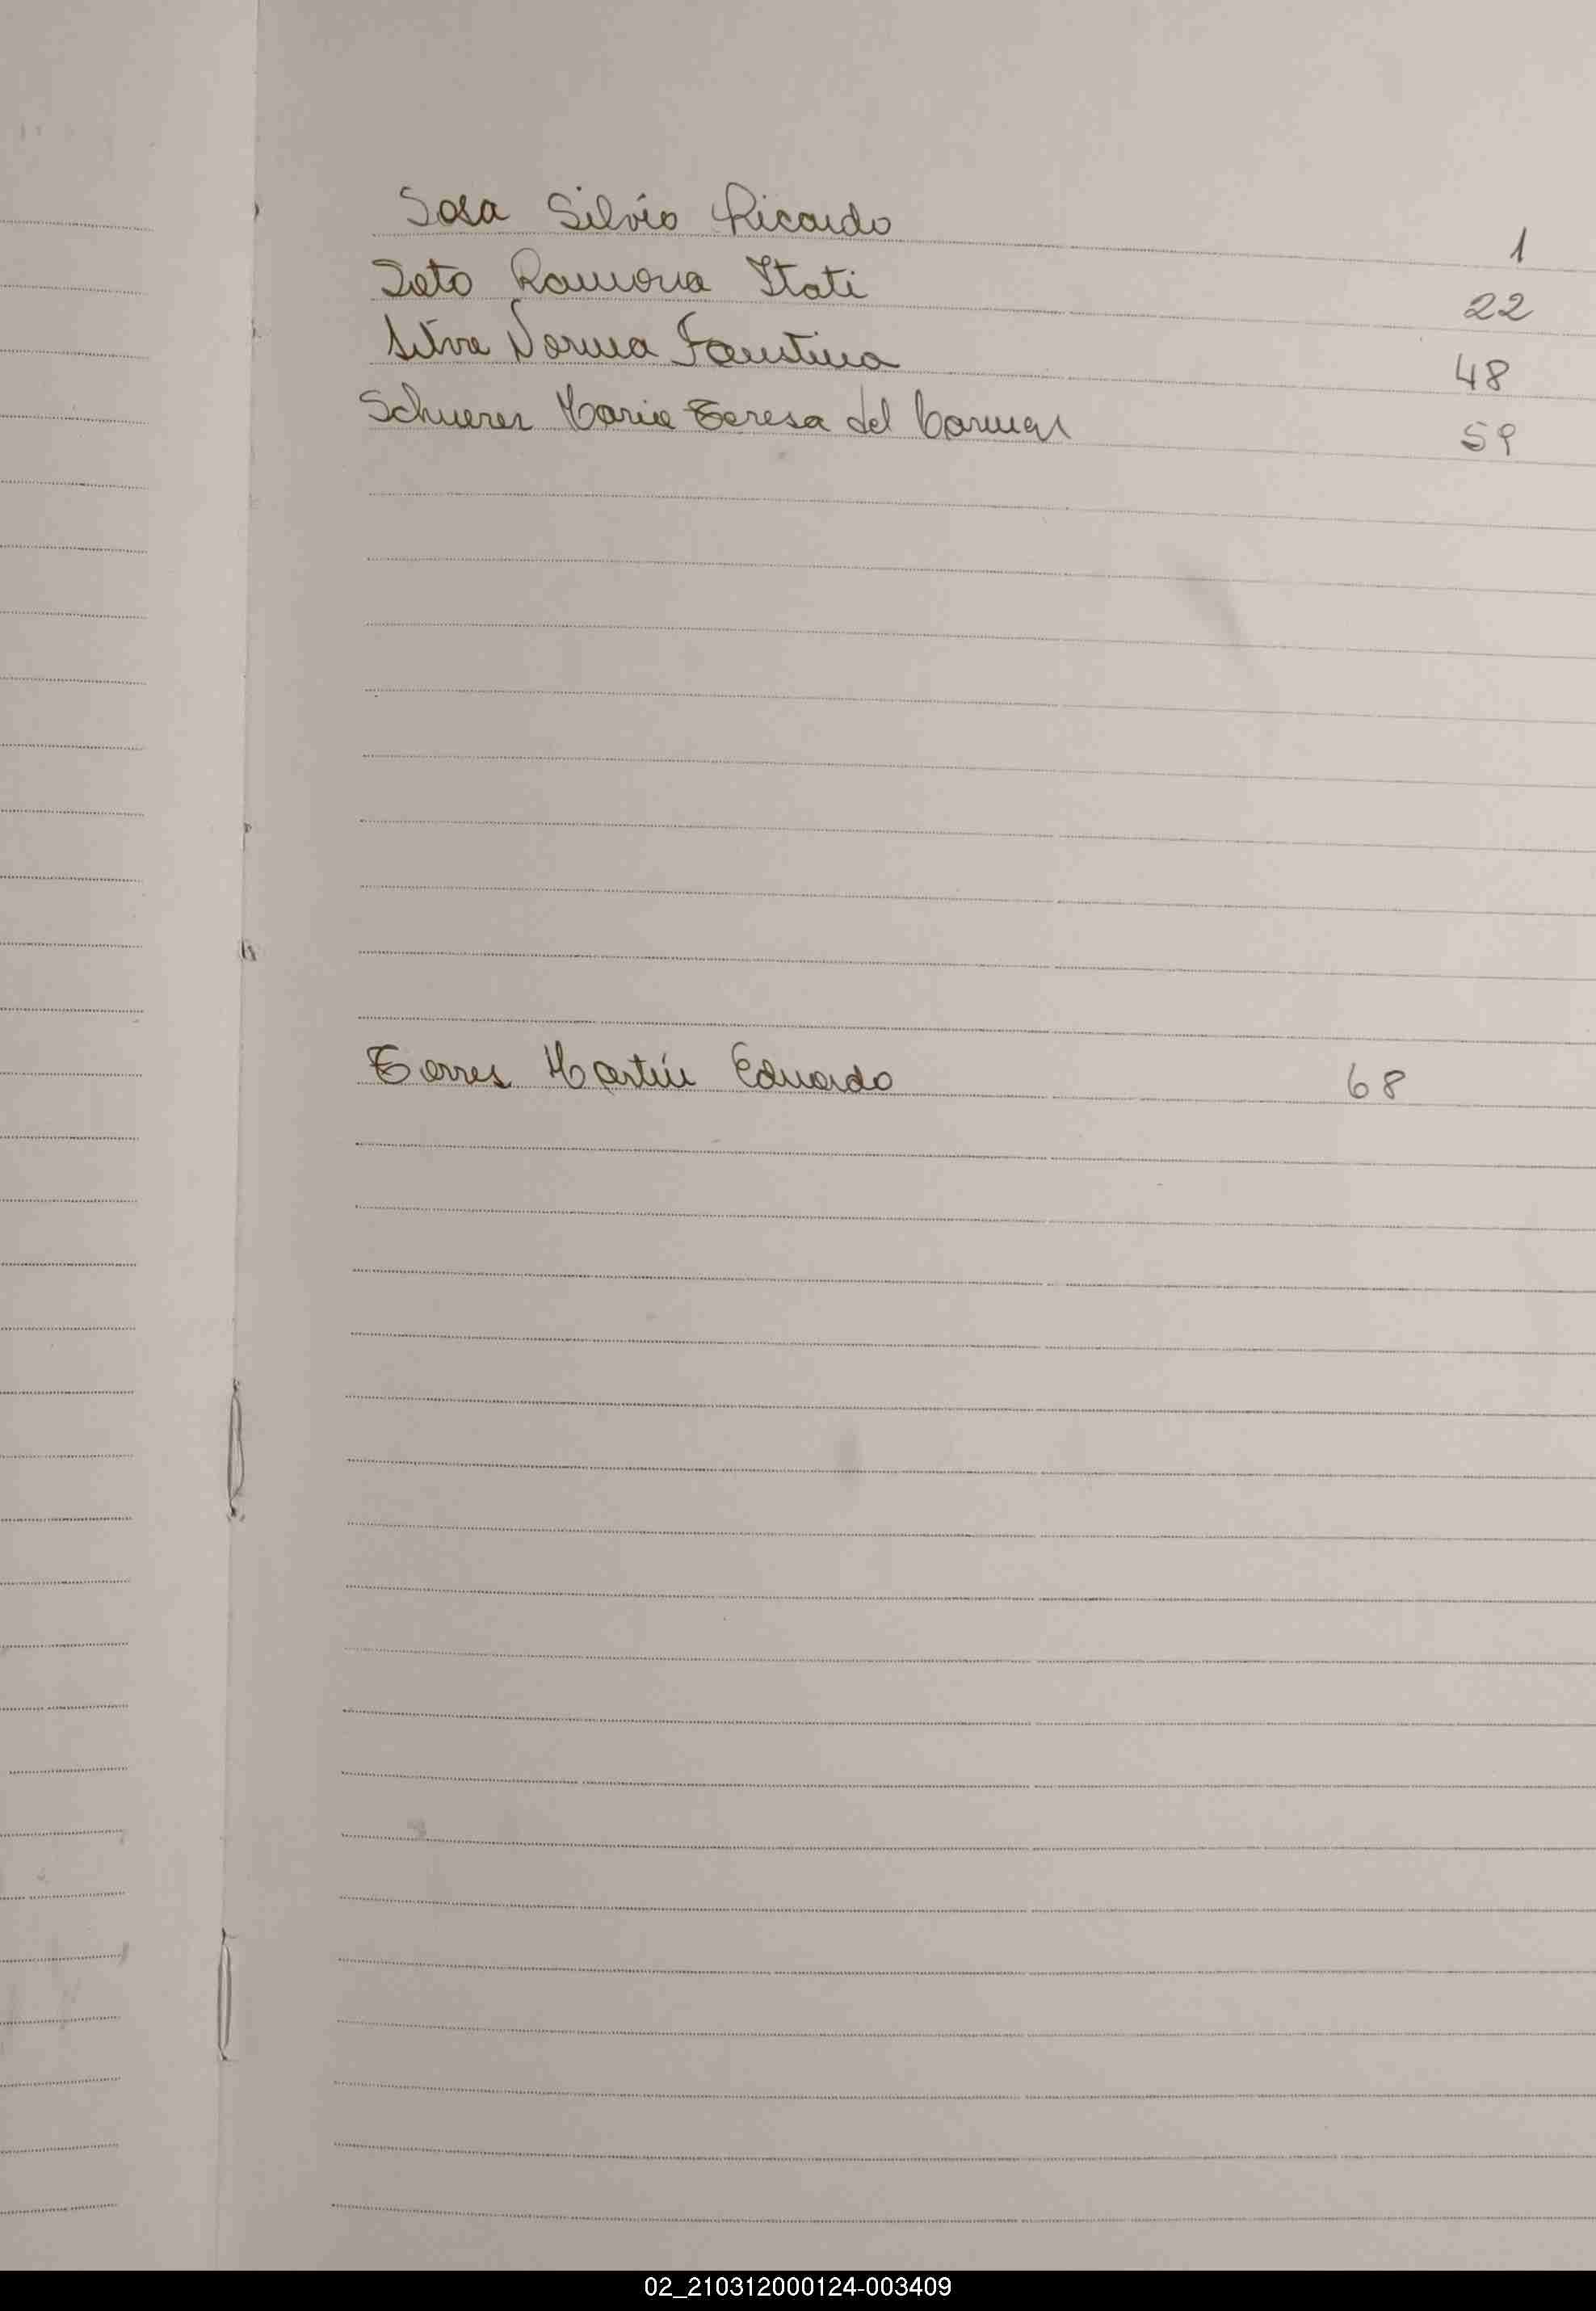 Sosa Silvio Ricardo 1
Soto Ramona Itati 22
Silva Norma Faustina 48
Maria Teresa del Carmen 59
Torres Martín Eduardo 68
02_210312000124-003409